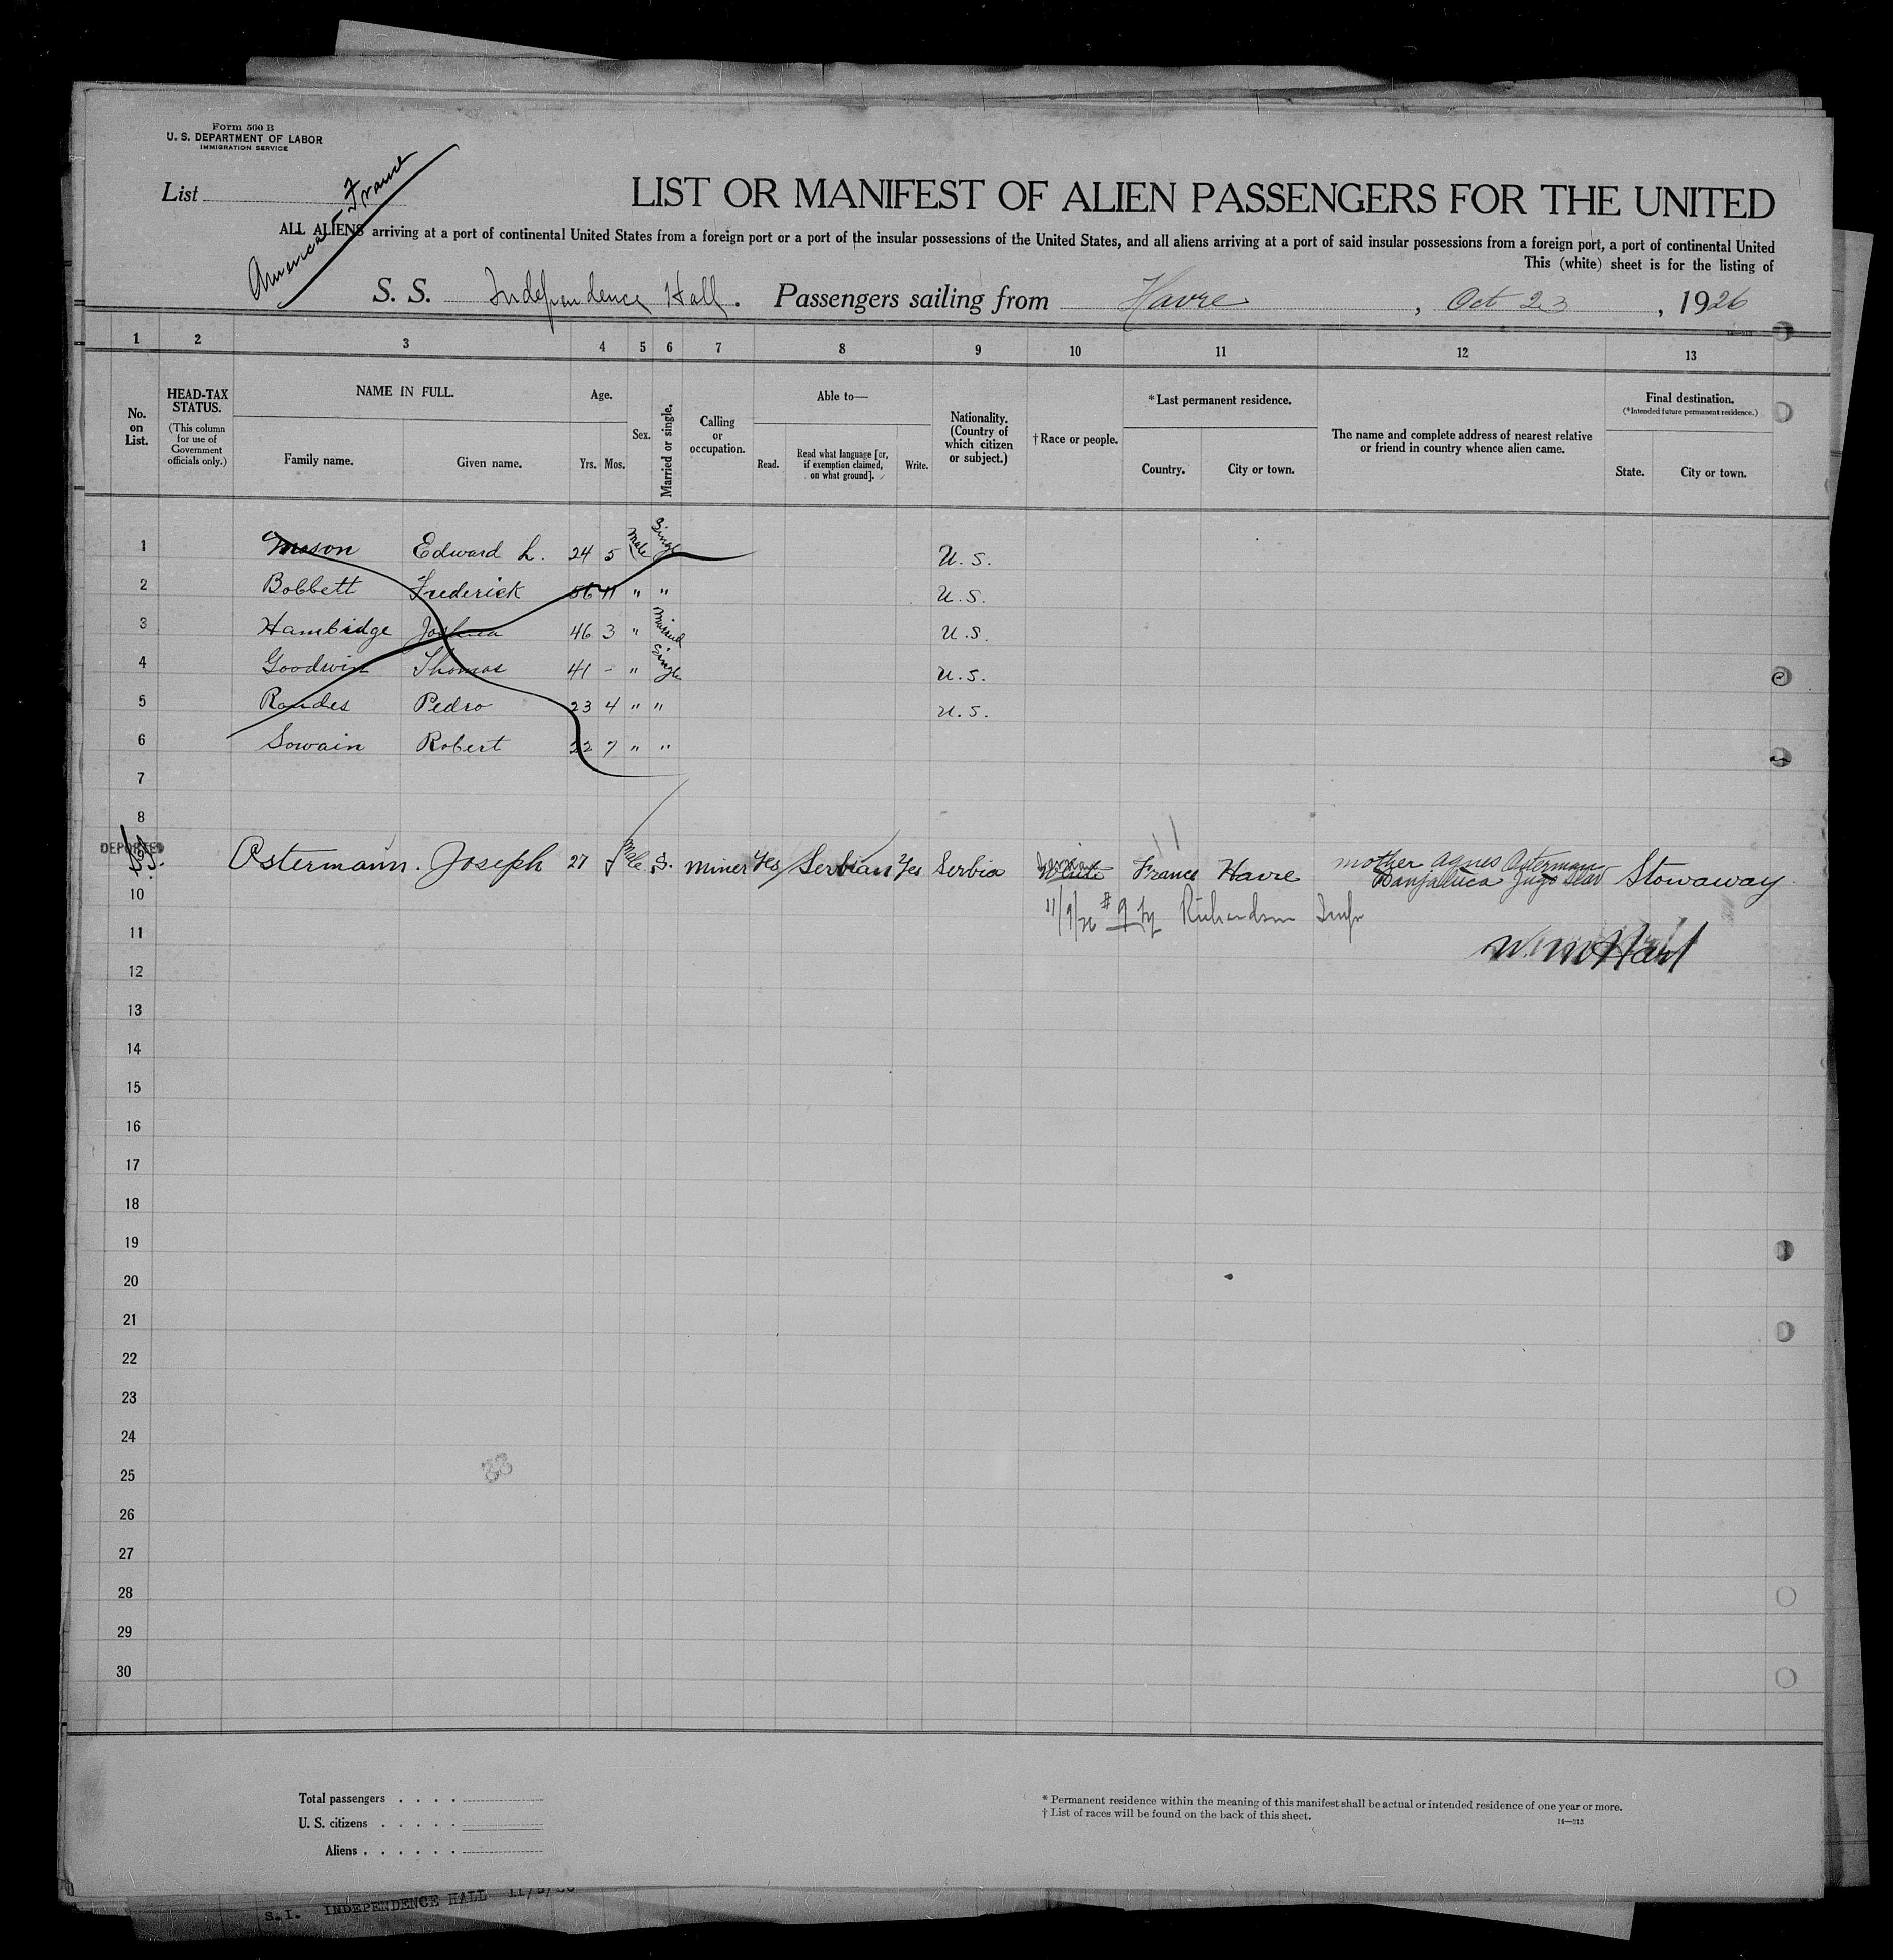 Form 500 B
U. S. DEPARTMENT OF LABOR
IMMIGRATION SERVICE
List
America-France
LIST OR MANIFEST OF ALIEN PASSENGERS FOR THE UNITED
ALL ALIENS arriving at a port of continental United States from a foreign port or a port of the insular possessions of the United States, and all aliens arriving at a port of said insular possessions from a foreign port, a port of continental United
This (white) sheet is for the listing of
S. S. Independence Hall. Passengers sailing from Havre, Oct 23, 1926
1 2 3 4 5 6 7 8 9 10 11 12 13
No. on List.
HEAD-TAX STATUS.
(This column for use of Government officials only.)
NAME IN FULL.
Family name. Given name.
Age.
Yrs. Mos.
Sex.
Married or single.
Calling or occupation.
Able to—
Read. Read what language [or, if exemption claimed, on what ground]. Write.
Nationality. (Country of which citizen or subject.)
†Race or people.
*Last permanent residence.
Country. City or town.
The name and complete address of nearest relative or friend in country whence alien came.
Final destination.
(*Intended future permanent residence.)
State. City or town.
1 Mason Edward L. 24 5 Male Single U. S.
2 Bobbett Frederick 56 11 " " U. S.
3 Hambidge Joshua 46 3 " Married U. S.
4 Goodwin Thomas 41 - " Single U. S.
5 Roudes Pedro 23 4 " " U. S.
6 Sowain Robert 22 7 " "
7
8
DEPORTED Ostermann. Joseph 27 Male S. Miner Yes Serbian Yes Serbia France Havre mother Agnes Ostermann Banjaluca Jugo Slav Stowaway
10 11/9/26 #9 by Richardson Insp
11
W. M. Hart
12
13
14
15
16
17
18
19
20
21
22
23
24
25
26
27
28
29
30
33
Total passengers
U. S. citizens
Aliens
* Permanent residence within the meaning of this manifest shall be actual or intended residence of one year or more.
† List of races will be found on the back of this sheet.
14—213
S.I. INDEPENDENCE HALL